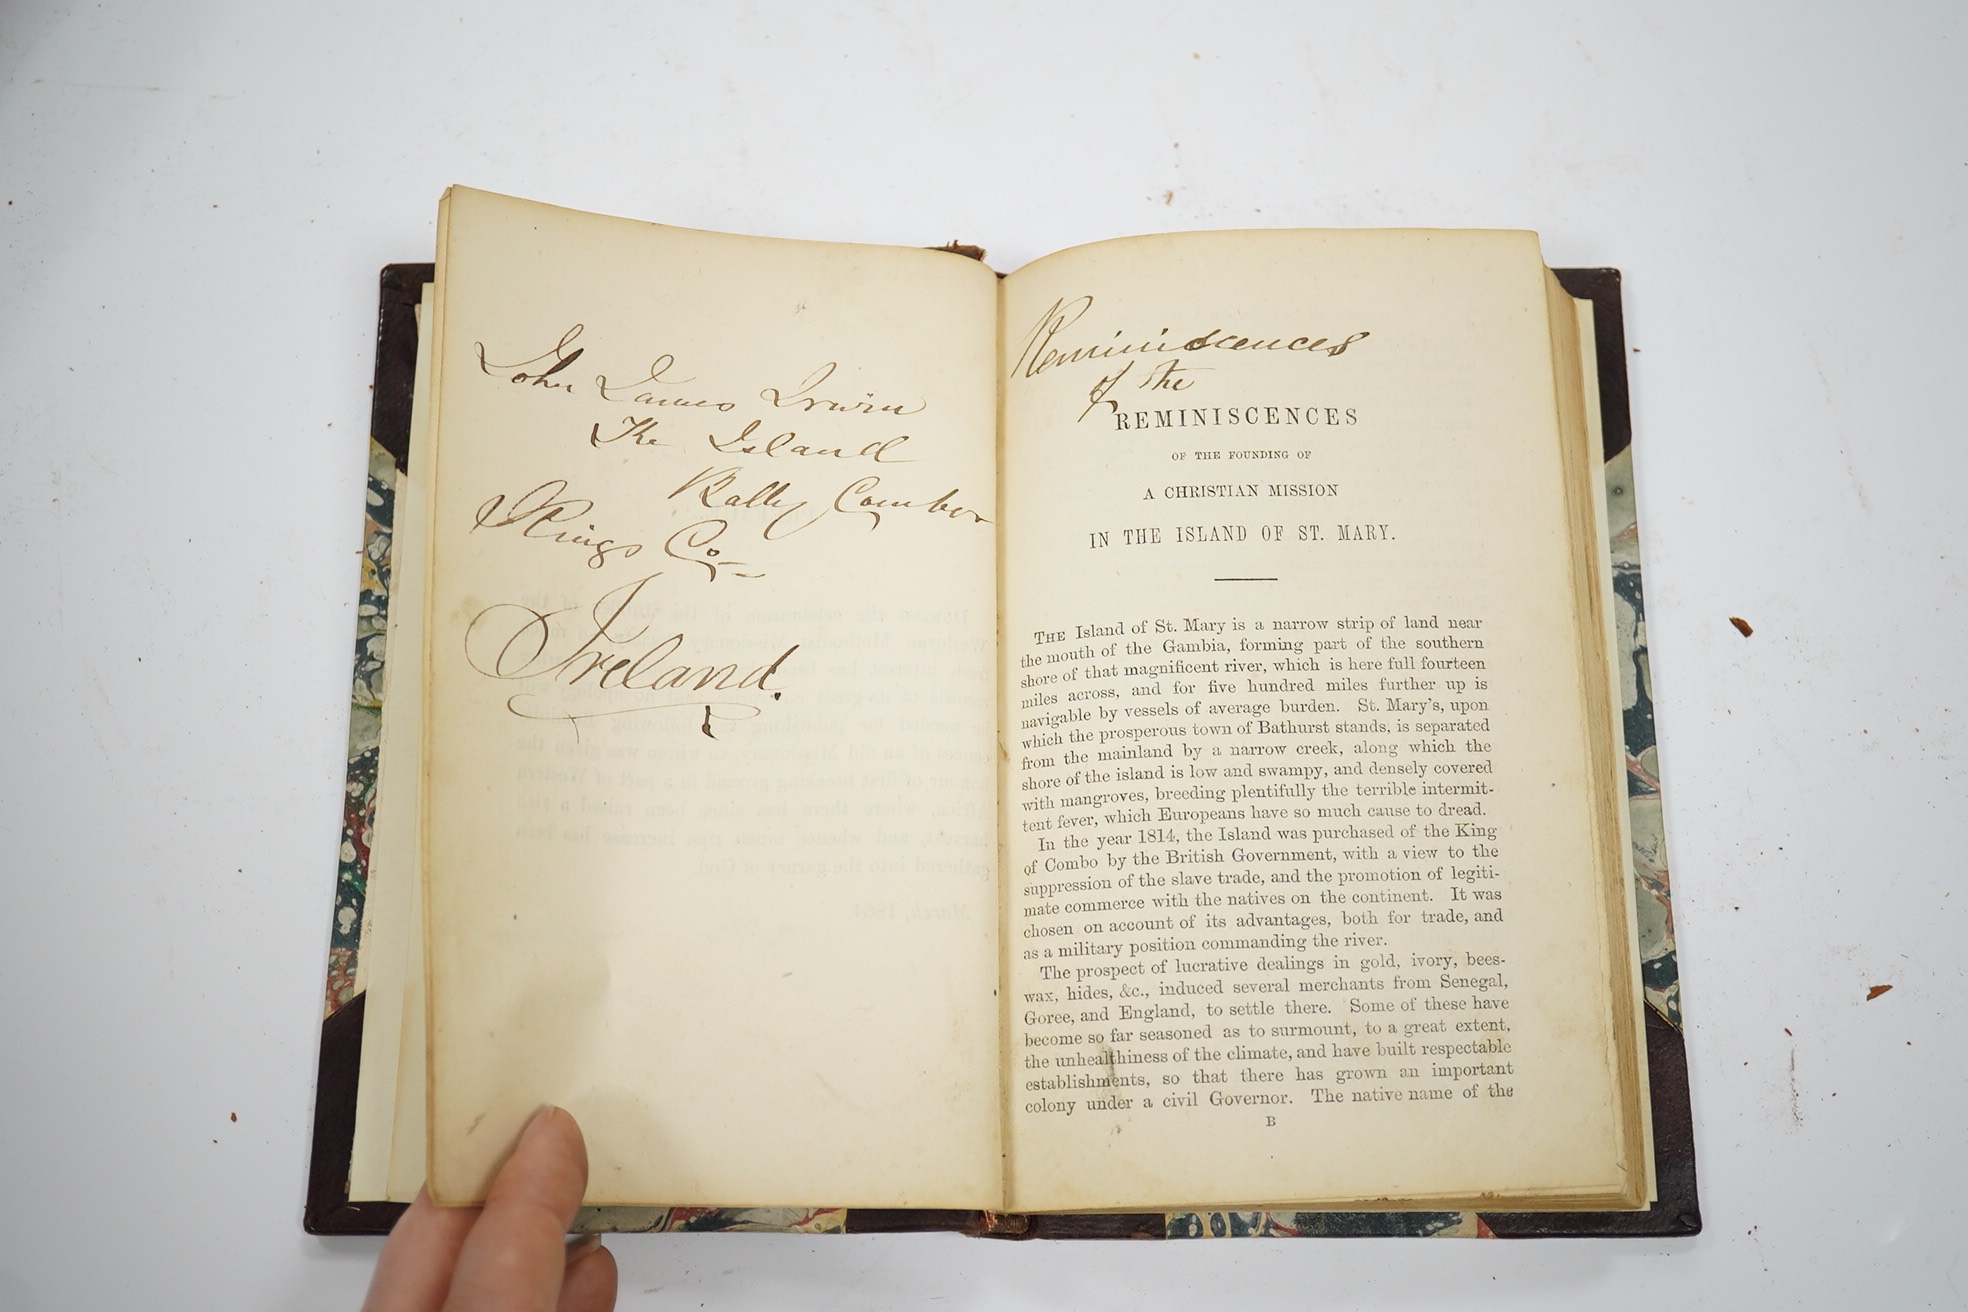 John James Irwin
The Island
Bally Cumber
Kings Co
Ireland.
Reminiscences
of the
REMINISCENCES
OF THE FOUNDING OF
A CHRISTIAN MISSION
IN THE ISLAND OF ST. MARY.
THE Island of St. Mary is a narrow strip of land near
the mouth of the Gambia, forming part of the southern
shore of that magnificent river, which is here full fourteen
miles across, and for five hundred miles further up is
navigable by vessels of average burden. St. Mary's, upon
which the prosperous town of Bathurst stands, is separated
from the mainland by a narrow creek, along which the
shore of the island is low and swampy, and densely covered
with mangroves, breeding plentifully the terrible intermit-
tent fever, which Europeans have so much cause to dread.
In the year 1814, the Island was purchased of the King
of Combo by the British Government, with a view to the
suppression of the slave trade, and the promotion of legiti-
mate commerce with the natives on the continent. It was
chosen on account of its advantages, both for trade, and
as a military position commanding the river.
The prospect of lucrative dealings in gold, ivory, bees-
wax, hides, &c., induced several merchants from Senegal,
Goree, and England, to settle there. Some of these have
become so far seasoned as to surmount, to a great extent,
the unhealthiness of the climate, and have built respectable
establishments, so that there has grown an important
colony under a civil Governor. The native name of the
B